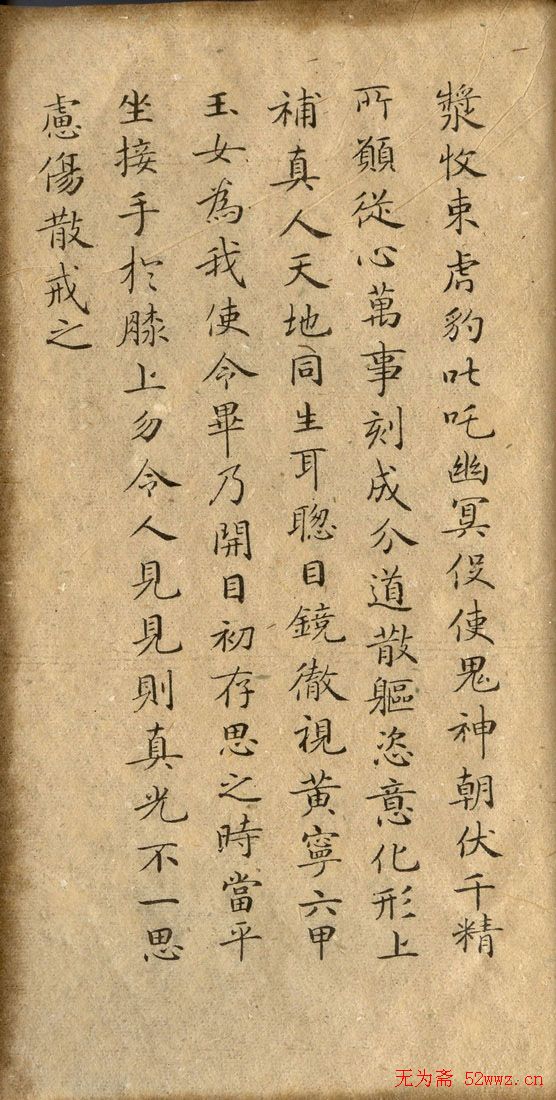 漿收束虎豹叱吒幽冥役使鬼神朝伏千精
所願從心萬事剋成分道散軀恣意化形上
補真人天地同生耳聰目鏡徹視黃寧六甲
玉女為我使令畢乃開目初存思之時當平
坐接手於膝上勿令人見見則真光不一思
慮傷散戒之
无为斋 52wwz.cn